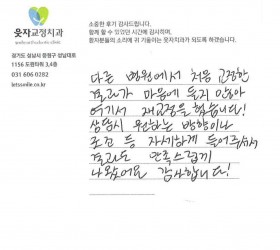 웃자교정치과
경기도 성남시 중원구 성남대로
1156 도원타워 3,4층
031 606 0282
letssmile.co.kr
소중한 후기 감사드립니다.
함께 할 수 있었던 시간에 감사하며,
환자분들의 소리에 귀 기울이는 웃자치과가 되도록 하겠습니다.
다른 병원에서 처음 교정한
결과가 마음에 들지 않아
여기서 재교정을 했습니다!
상담시 원하는 방향이나
조건 등 자세하게 들어주셔서
결과도 만족스럽게
나왔어요 감사합니다!